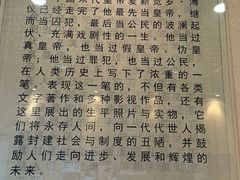 经走完了他当皇帝爱新觉罗·溥
已当囚犯,最后当公民的波澜起
伏、充满戏剧性的一生。他当过
真皇帝;也当过假皇帝、伪皇
帝;他当过罪犯,也当过公民,
在人类历史上写下了浓重的一
笔。表现这一笔的,不但有各类
文字著作和多种影视作品,还有
这里展出的生平照片与实物,它
们将永存人间,向一代代世人揭
露封建社会与制度的丑陋,并鼓
励人们走向进步、发展和辉煌的
未来。